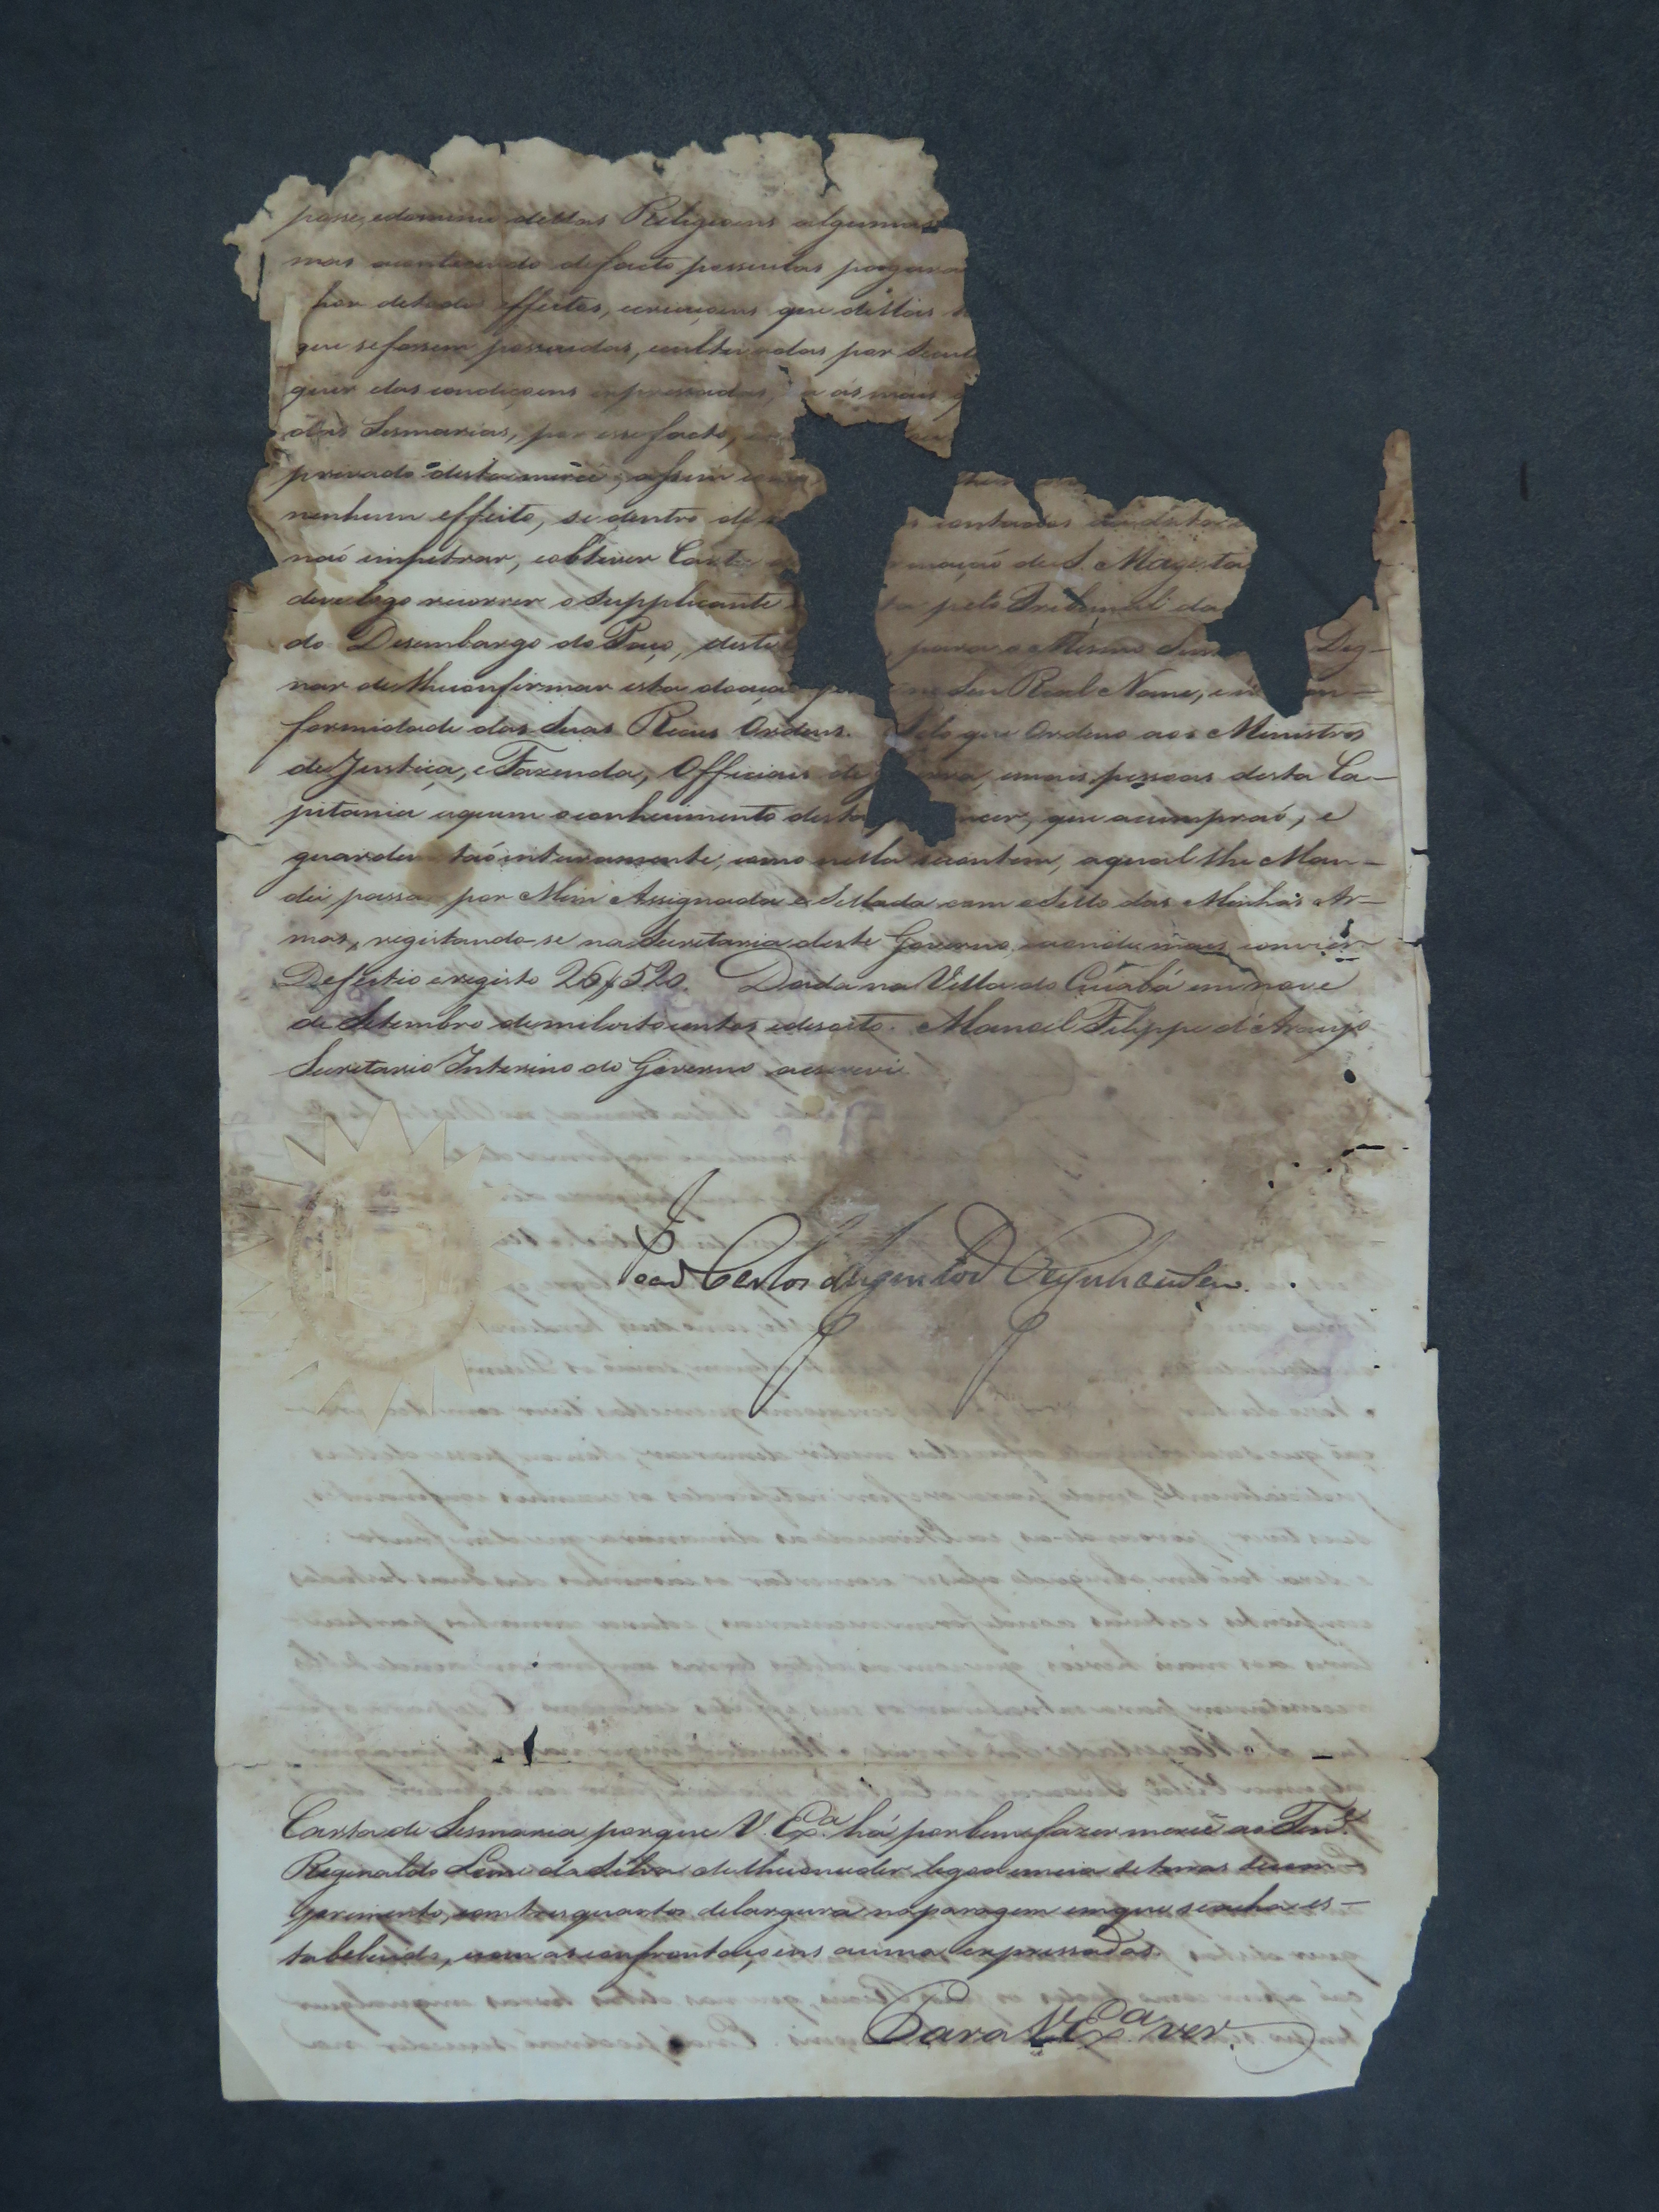 posse, edominio dellas Religioens algumas
mas acontecendo defacto possuilas pagara
por detodos effeitos, ecriaçoens que dellas
que sefossem possuidas, ecultivadas por Secul
quer das condiçoens expressadas, e ás mais
dar Sesmarias, por essefacto,
privado destamercê, assim como
nenhum effeito, sidentro de contados dadata
naó impetrar, eobtiver Carta maçaó de S. Magesta
develogo recorrer oSupplicante pelo Tribunal da
do Desembargo do Paço, deste para o Mesmo Senr Dig-
nar deMeconfirmar esta doaçaó em Seu Real Nome, e na con-
formidade das Suas Reaes Ordens. Pelo que Ordeno aos Ministros
deJustiça, eFazenda, Officiaes de guerra, emais pessoas desta Ca-
pitania aquem oconhecimento desta pertencer, que acumpraó, e
guardem taó inteiramente, como nella secontem, aqual lhe Man-
dei passar por Mim Assignada e Sellada com oSello das Minhas Ar-
mas, registando-se naSecretaria deste Governo, eaonde mais convier.
Defeitio eregisto 26$520. Dada na Villa do Cuiabá em nove
de Setembro demiloitocentos edesoito. Manoel Filippe d'Araujo
Secretario Interino do Governo aescrevi.
Joaó Carlos Augusto d'Oeynhausen.
Carta de Sesmaria porque V. Exa. há porbem fazer mercê ao Tene.
Reginaldo Leme daSilva delheconceder legoa emeia deterras decom-
primento, comtresquartos delargura naparagem emque seacha es-
tabelecido, com asconfrontaçoens acima expressadas.
Para V. Exa. ver.